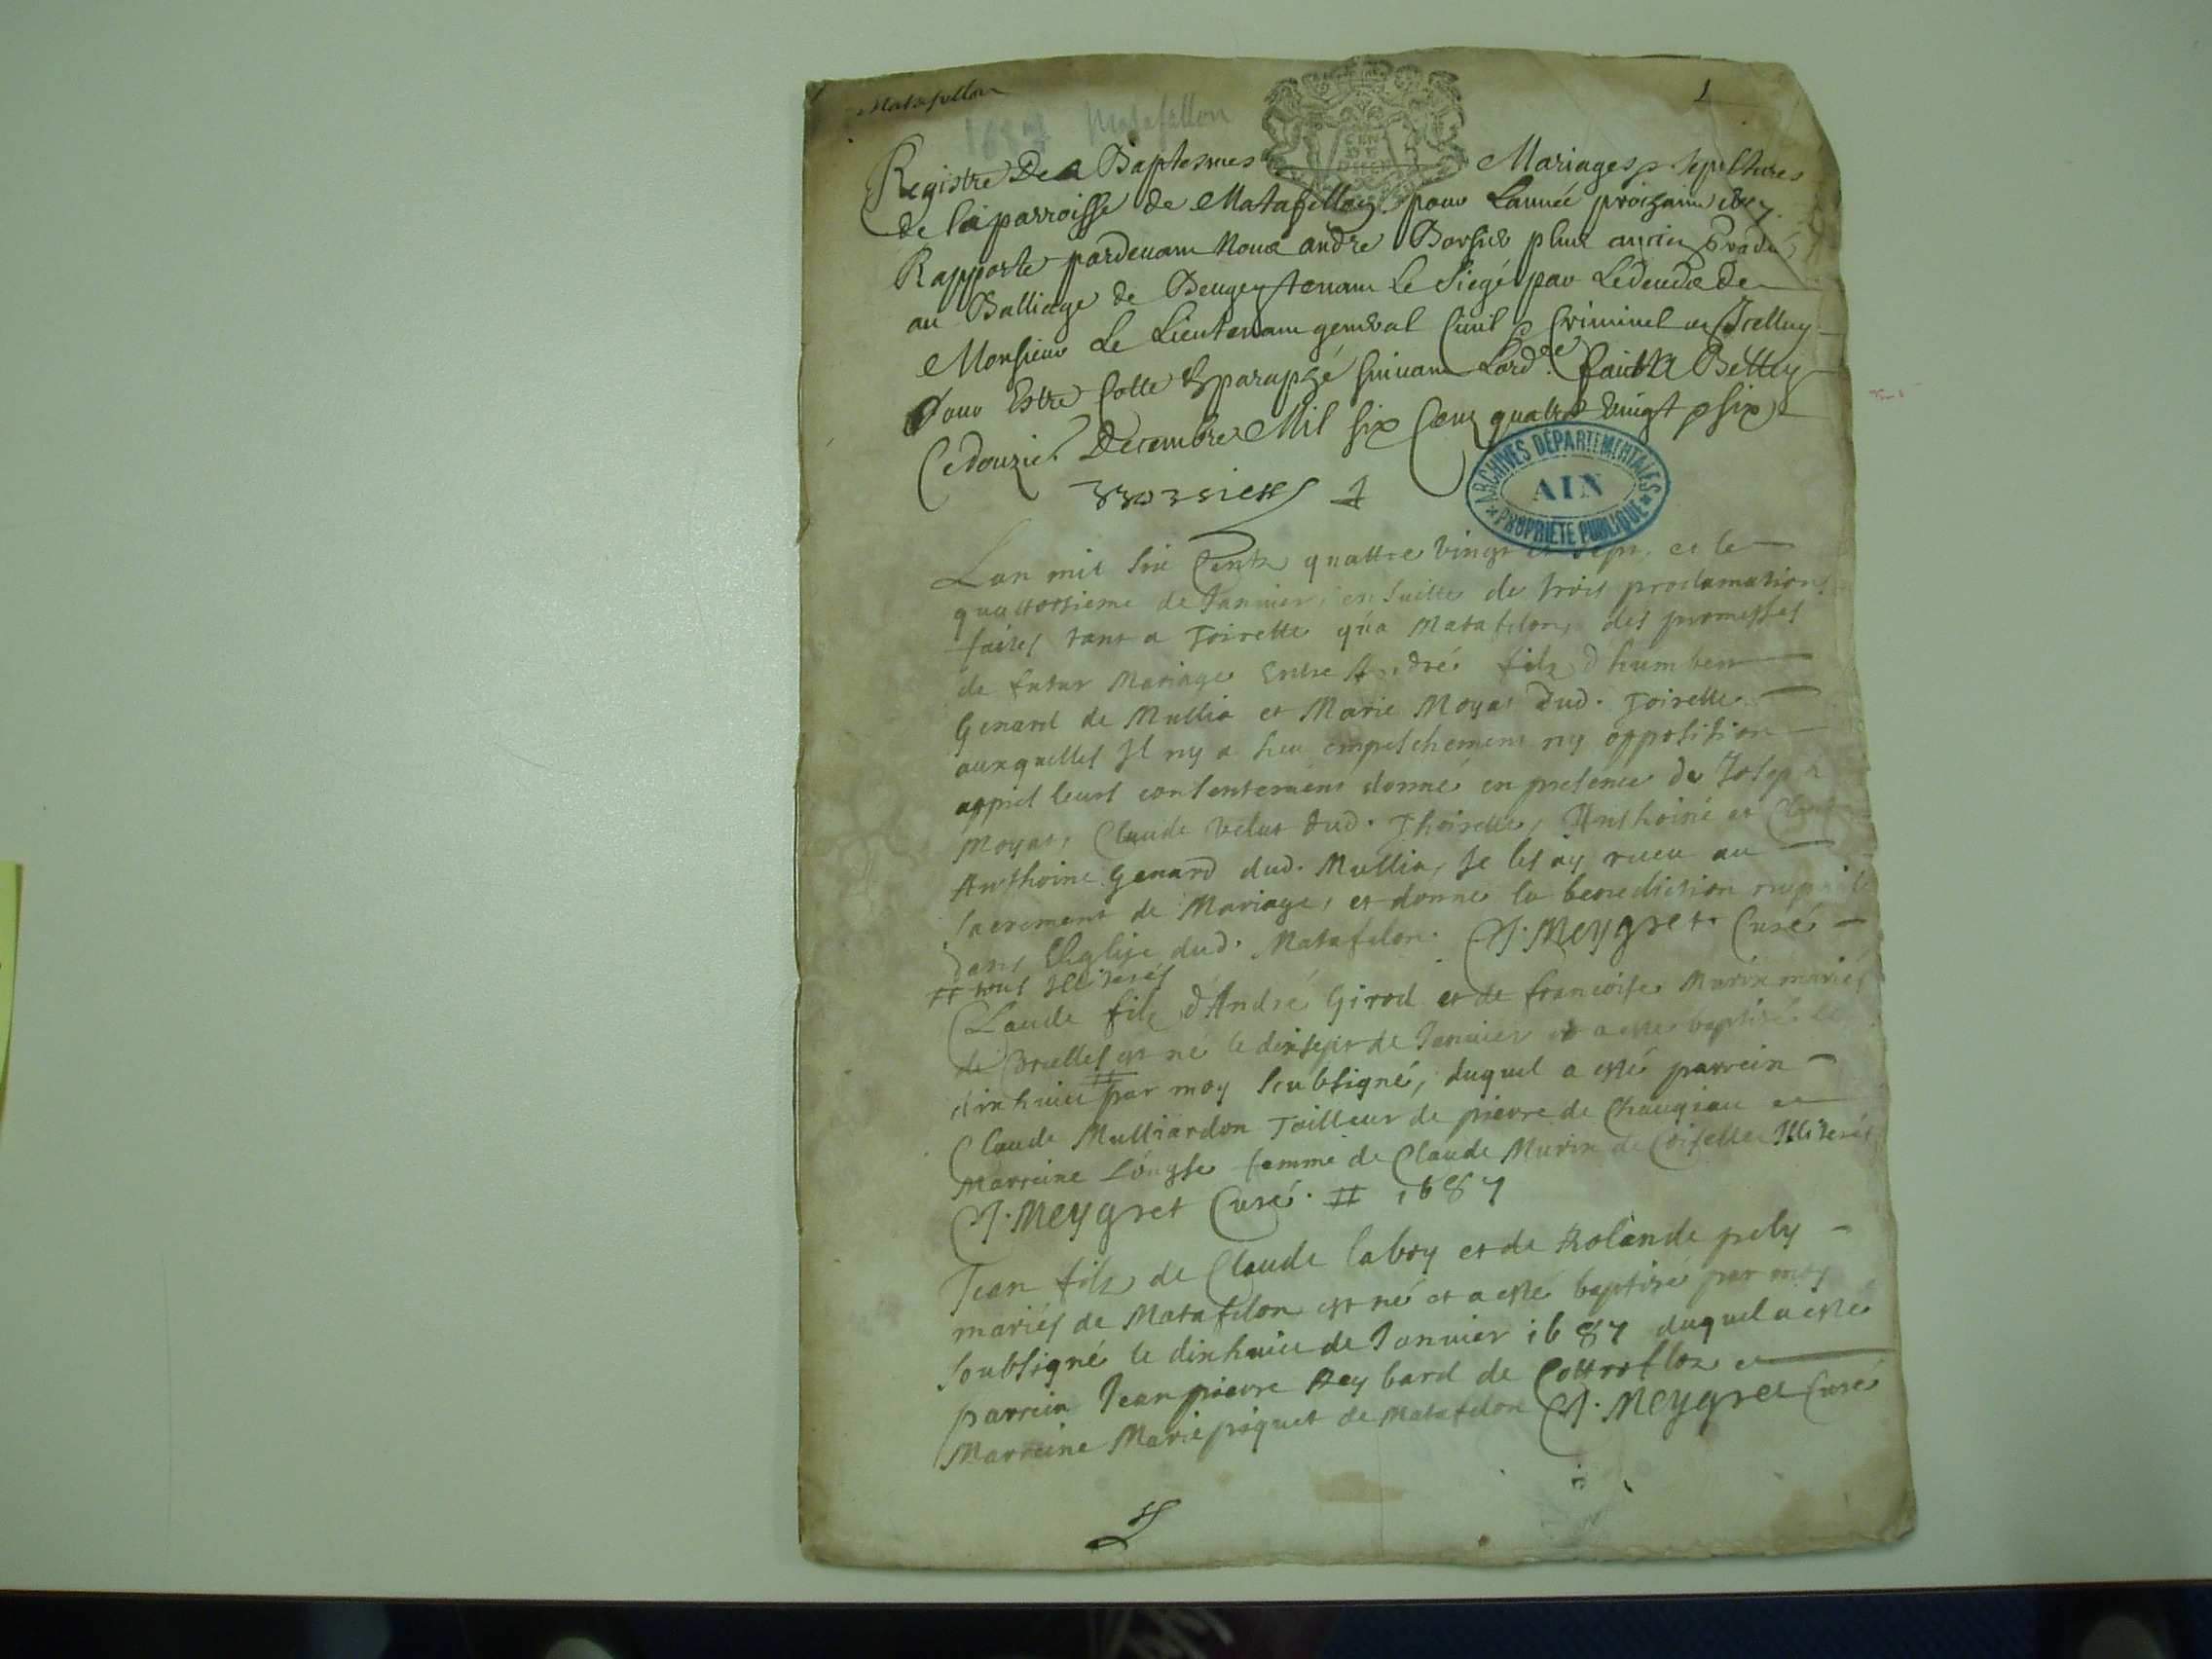 Matafellon
1687 Matafellon
1
GEN DE
Registre Des Baptesmes Mariages & sepultures
de la parroisse de Matafellon pour Lannée prochaine
Rapporte pardevant Nous andre Borsier plus ancien gradué
au Balliage de Beugey tenant Le Siege par Le deceds de
Monsieur Le Lieutenant general Civil & Criminel
Pour Estre Cotte & paraphé suivant Lord.ce faict a Belley
Ce douzie. Decembre Mil six Cens quatre vingt & six
Borsier 1
ARCHIVES DÉPARTEMENTALES
AIN
PROPRIÉTÉ PUBLIQUE
Lan mil six Cents quattre vingt et sept, et le
quattorsieme de Januier, ensuitte de trois proclamations
faites tant a Toirette qu'a Matafelon, des promesses
de futur Mariage Entre André filz d'humbert
Genard de Mullia et Marie Moyat dud. Toirette
auxquelles Il ny a heu empeschement ny opposition
appres leurs consentement donné en presence de Joseph
Moyat, Claude Velut dud. Thoirette, Anthoine et
Anthoine Genard dud. Mullia, Je les ay receu au
Sacrement de Mariage, et donné la benediction nuptiale
dans L'Eglise dud. Matafelon. J. Meygret Curé
# tous Illiterés
Claude filz d'André Girod et de francoise Murix mariés
de Corcelles est né le dixsept de Januier et a esté baptisé le
dixhuict # par moy soubsigné, duquel a esté parrein
Claude Mulliardon Tailleur de pierre de Chaugian et
Marreine Louyse femme de Claude Murix de Coiselle Illiterés
J. Meygret Curé. # 1687
Jean filz de Claude labry et de Rolande pely
mariés de Matafelon est né et a esté baptisé par moy
soubsigné le dixhuict de Januier 1687 duquel a esté
parrein Jean pierre Reybard de Cottrofloz et
Marreine Marie piquet de Matafelon J. Meygret Curé